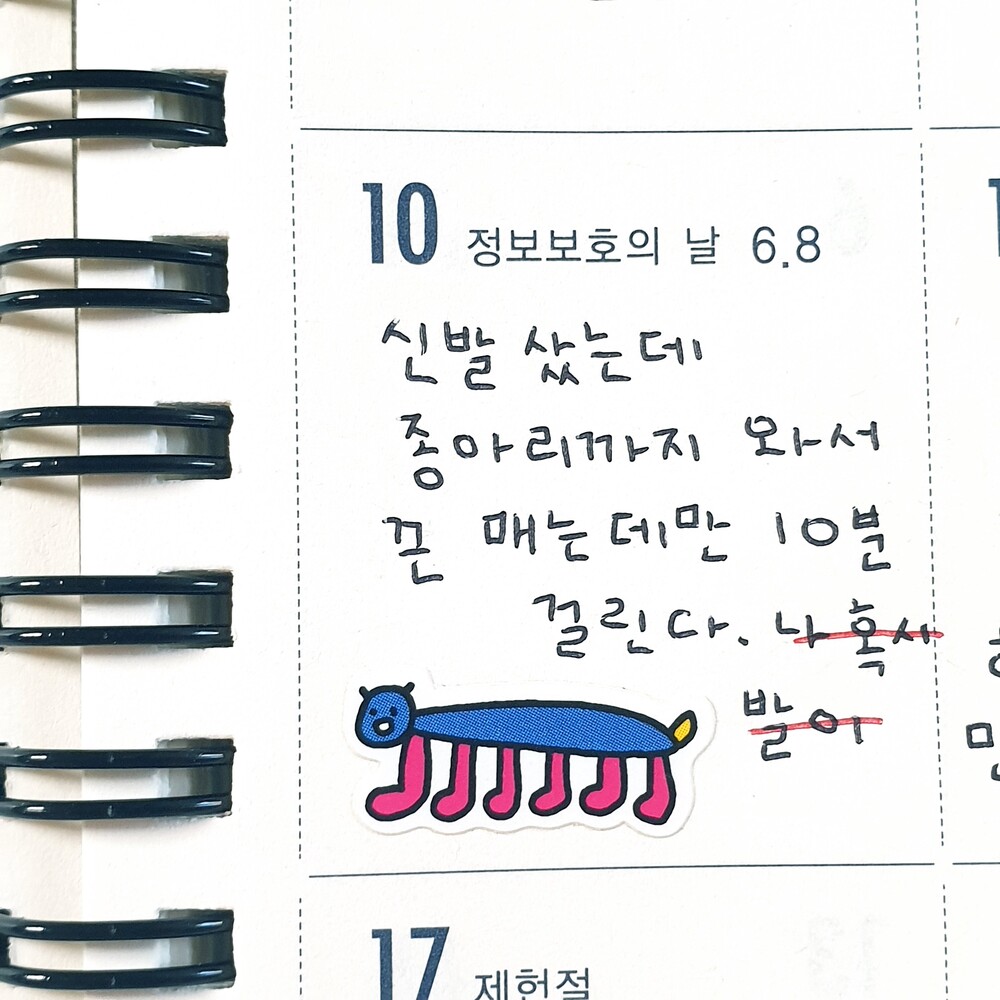 10 정보보호의 날 6.8
신발 샀는데
종아리까지 와서
끈 매는데만 10분
걸린다. 나 혹시
발이
17 제헌절